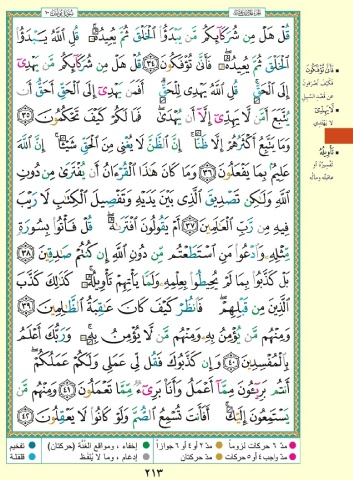 سُورَةُ يُونُسَ ١٠
قُلْ هَلْ مِن شُرَكَآئِكُم مَّن يَبْدَؤُا۟ ٱلْخَلْقَ ثُمَّ يُعِيدُهُۥ ۚ قُلِ ٱللَّهُ يَبْدَؤُا۟
ٱلْخَلْقَ ثُمَّ يُعِيدُهُۥ ۖ فَأَنَّىٰ تُؤْفَكُونَ ٣٤ قُلْ هَلْ مِن شُرَكَآئِكُم مَّن يَهْدِىٓ
إِلَى ٱلْحَقِّ ۚ قُلِ ٱللَّهُ يَهْدِى لِلْحَقِّ ۗ أَفَمَن يَهْدِىٓ إِلَى ٱلْحَقِّ أَحَقُّ أَن
يُتَّبَعَ أَمَّن لَّا يَهِدِّىٓ إِلَّآ أَن يُهْدَىٰ ۖ فَمَا لَكُمْ كَيْفَ تَحْكُمُونَ ٣٥
وَمَا يَتَّبِعُ أَكْثَرُهُمْ إِلَّا ظَنًّا ۚ إِنَّ ٱلظَّنَّ لَا يُغْنِى مِنَ ٱلْحَقِّ شَيْـًٔا ۚ إِنَّ ٱللَّهَ
عَلِيمٌۢ بِمَا يَفْعَلُونَ ٣٦ وَمَا كَانَ هَـٰذَا ٱلْقُرْءَانُ أَن يُفْتَرَىٰ مِن دُونِ
ٱللَّهِ وَلَـٰكِن تَصْدِيقَ ٱلَّذِى بَيْنَ يَدَيْهِ وَتَفْصِيلَ ٱلْكِتَـٰبِ لَا رَيْبَ
فِيهِ مِن رَّبِّ ٱلْعَـٰلَمِينَ ٣٧ أَمْ يَقُولُونَ ٱفْتَرَىٰهُ ۖ قُلْ فَأْتُوا۟ بِسُورَةٍ
مِّثْلِهِۦ وَٱدْعُوا۟ مَنِ ٱسْتَطَعْتُم مِّن دُونِ ٱللَّهِ إِن كُنتُمْ صَـٰدِقِينَ ٣٨
بَلْ كَذَّبُوا۟ بِمَا لَمْ يُحِيطُوا۟ بِعِلْمِهِۦ وَلَمَّا يَأْتِهِمْ تَأْوِيلُهُۥ ۚ كَذَٰلِكَ كَذَّبَ
ٱلَّذِينَ مِن قَبْلِهِمْ ۖ فَٱنظُرْ كَيْفَ كَانَ عَـٰقِبَةُ ٱلظَّـٰلِمِينَ ٣٩
وَمِنْهُم مَّن يُؤْمِنُ بِهِۦ وَمِنْهُم مَّن لَّا يُؤْمِنُ بِهِۦ ۚ وَرَبُّكَ أَعْلَمُ
بِٱلْمُفْسِدِينَ ٤٠ وَإِن كَذَّبُوكَ فَقُل لِّى عَمَلِى وَلَكُمْ عَمَلُكُمْ ۖ
أَنتُم بَرِيٓـُٔونَ مِمَّآ أَعْمَلُ وَأَنَا۠ بَرِىٓءٌ مِّمَّا تَعْمَلُونَ ٤١ وَمِنْهُم مَّن
يَسْتَمِعُونَ إِلَيْكَ ۚ أَفَأَنتَ تُسْمِعُ ٱلصُّمَّ وَلَوْ كَانُوا۟ لَا يَعْقِلُونَ ٤٢
فَأَنَّى تُؤْفَكُونَ
لَا يَهِدِّي
تَأْوِيلُهُ
مدّ ٦ حركات لزوماً
مدّ ٢ أو ٤ أو ٦ جوازاً
إخفاء، ومواقع الغُنَّة (حركتان)
تفخيم
مدّ واجب ٤ أو ٥ حركات
مدّ حركتان
إدغام، وما لا يُلفَظ
قلقلة
٢١٣